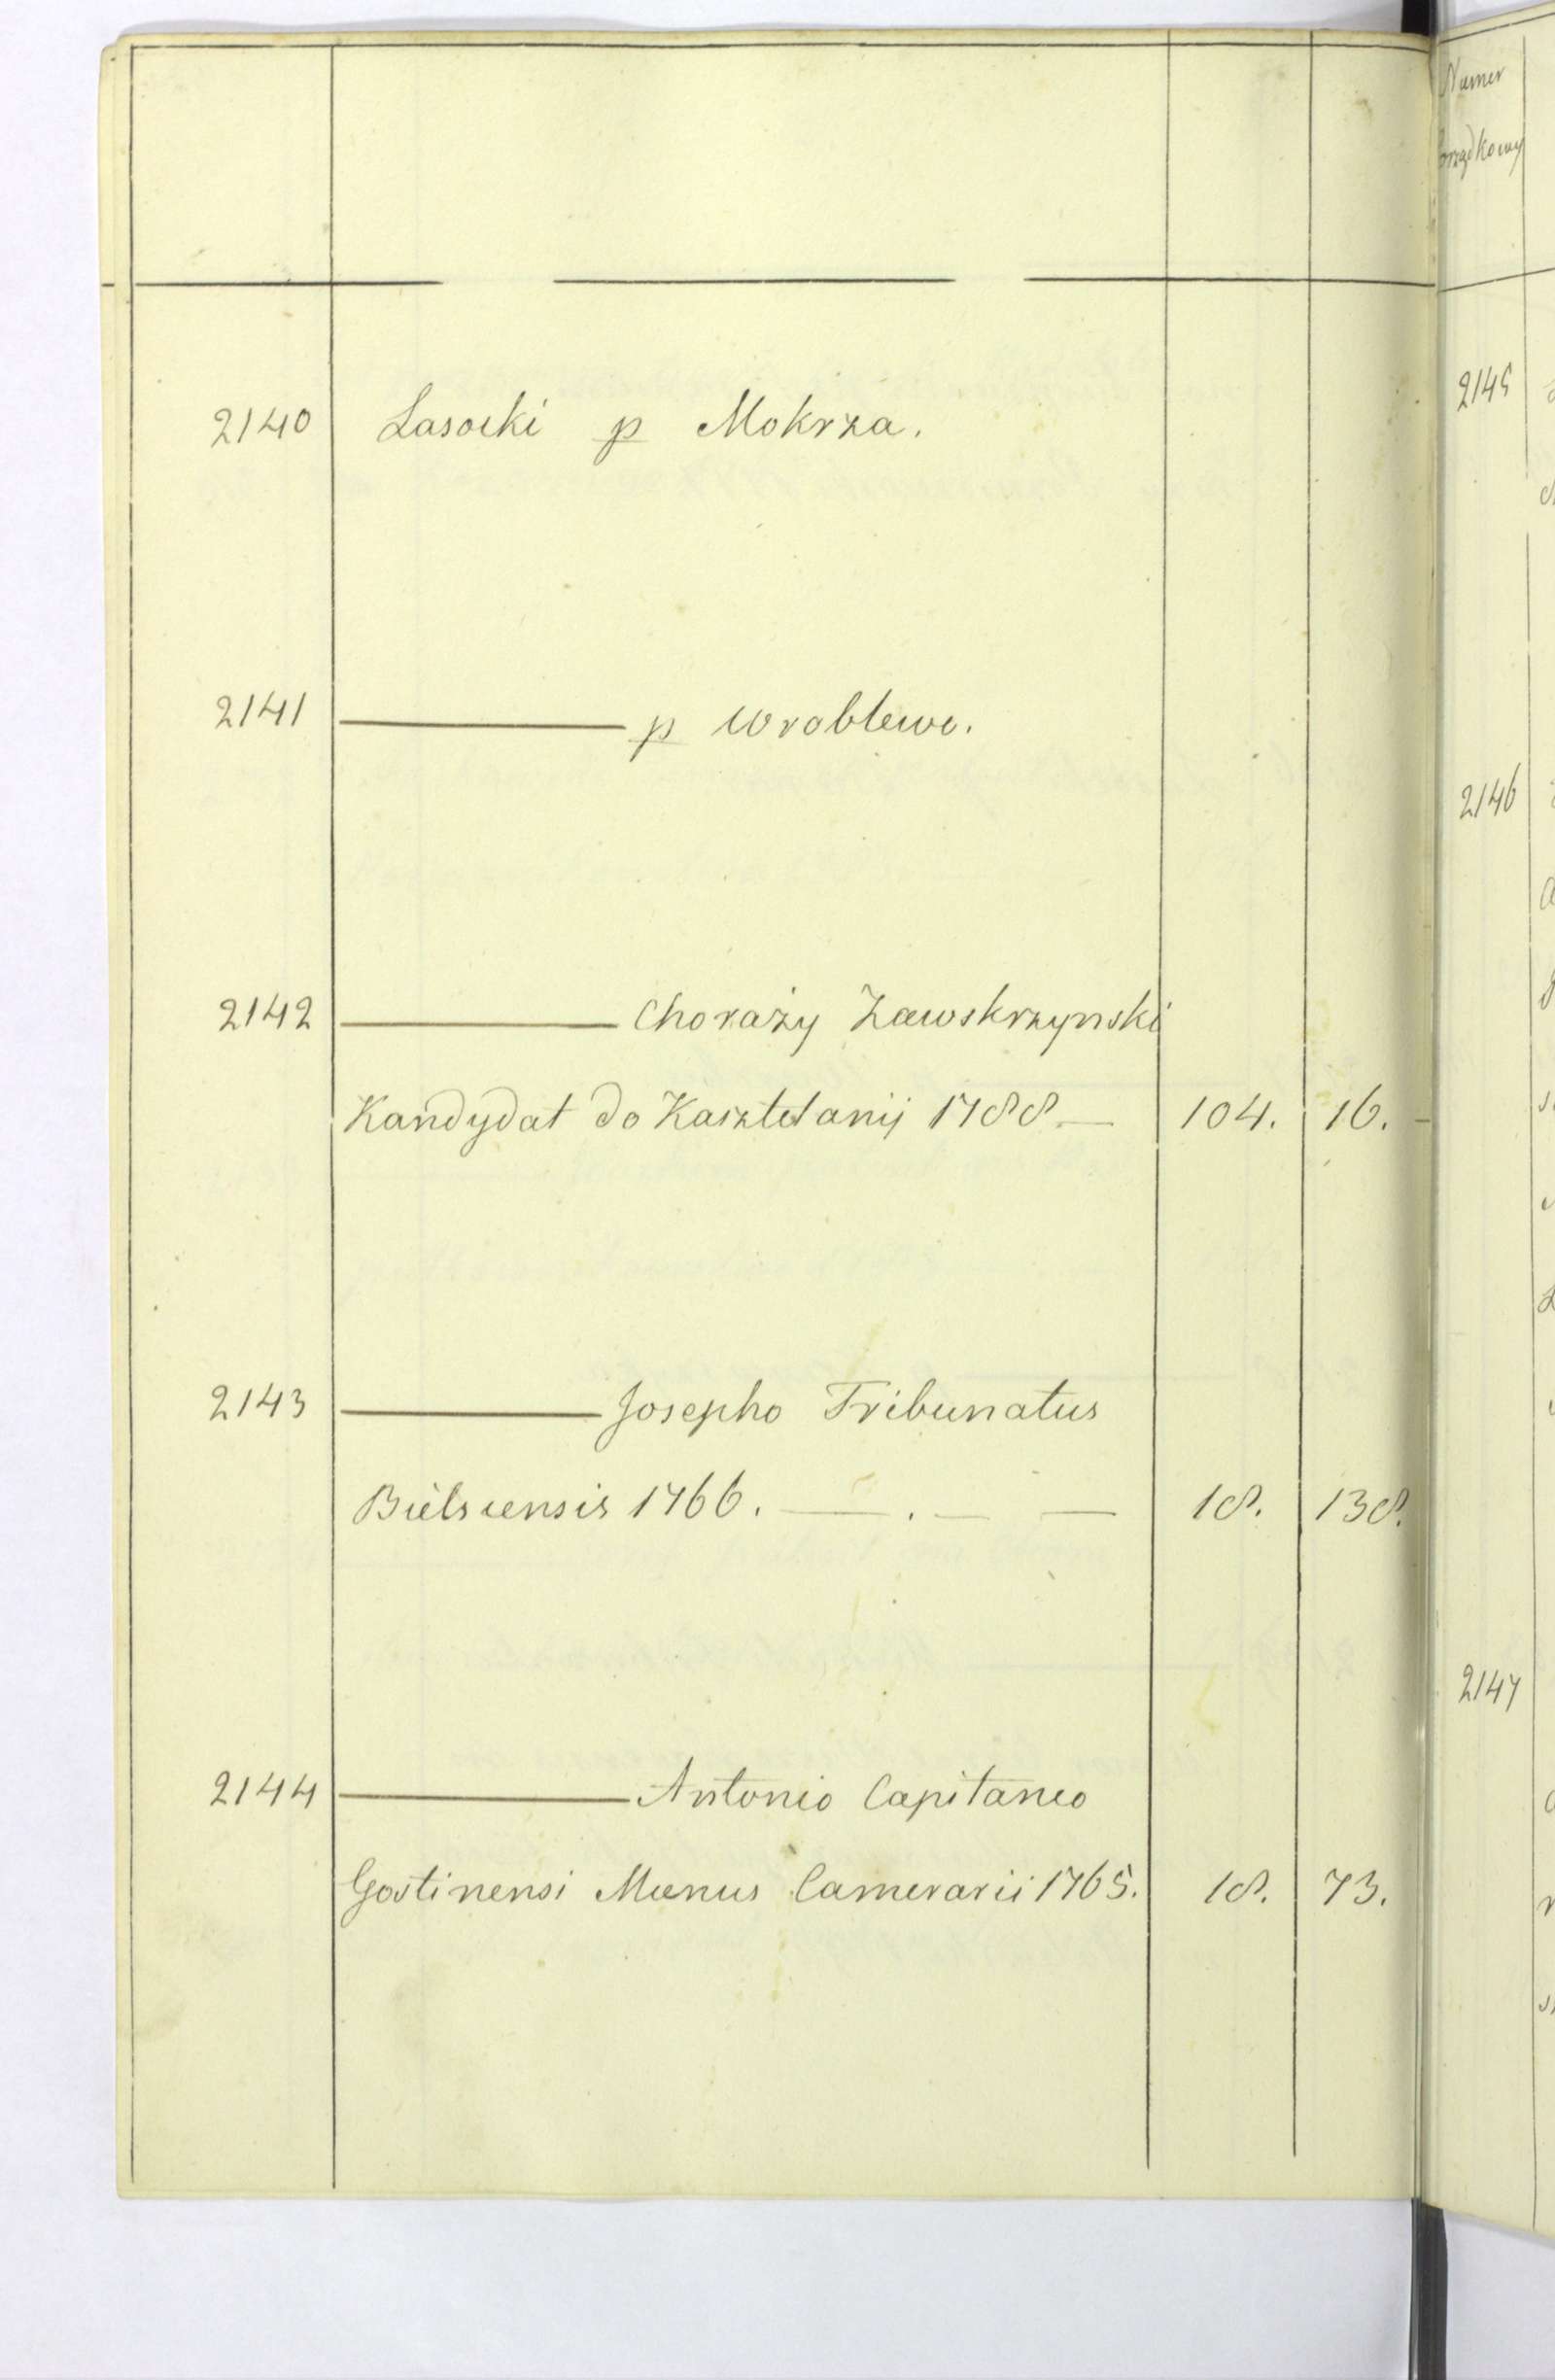 2140 Lasocki p Mokrza.
2141 ——— p Wroblewo.
2142 ——— Chorąży Zawskrzynski
Kandydat do Kasztelanij 1788 — 104. 16. -
2143 ——— Josepho Tribunatus
Bielscensis 1766. — . — — 18. 138.
2144 ——— Antonio Capitaneo
Gostinensi Munus Camerarii 1765. 18. 73.
Numer
porządkowy
2145
2146
2147